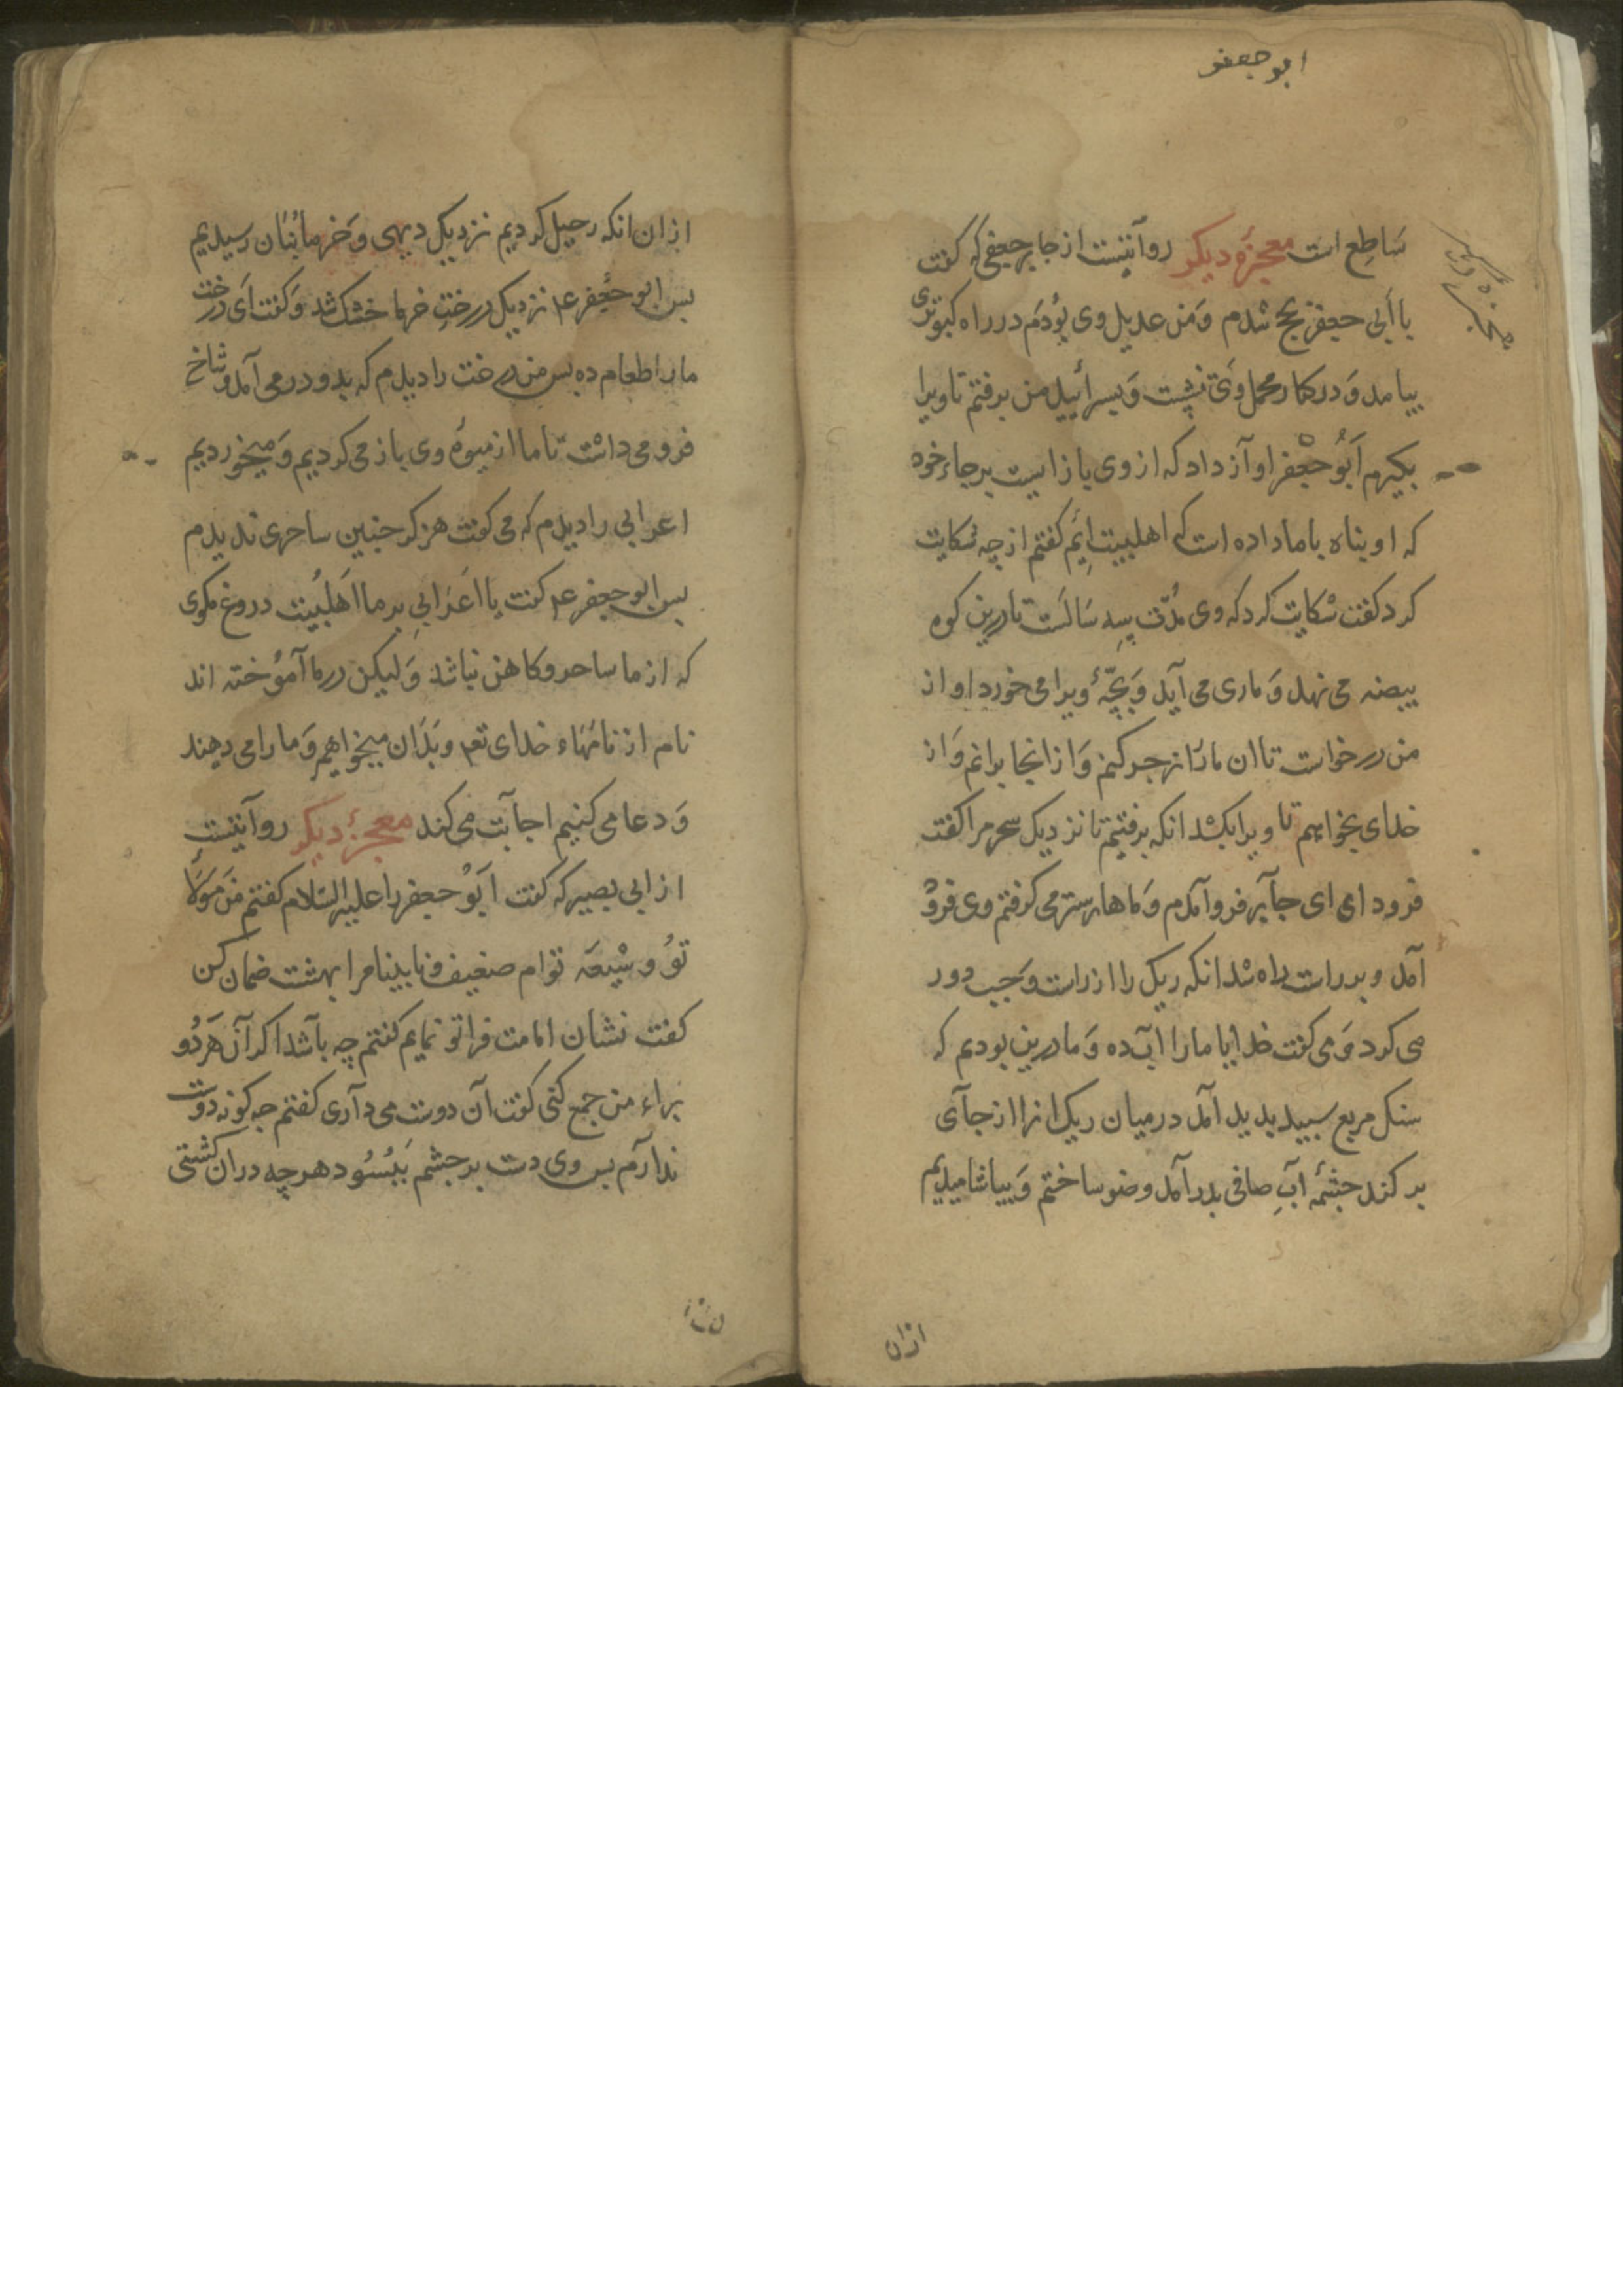 ابو جعفر
ساطع است معجزهٔ دیکر روآیتست از جابر جعفی که کفت
با ابی جعفر بحج شدم وَمَن عدیل وی بوُدَم در راه کبوتری
بیامد وَدر کنار محمل وَی نشست وَ من برفتم تا ویرا
بکیرم اَبُو جعْفر اوآز داد که از وی باز ایست بر جاء خود
که او پناه با ما داده است که اهلبیت ایَم کفتم از چه شکایت
کرد کفت شکایت کرد که وی مُدّت سِه سَالَست تا درین کوه
بیضه می نهد وَماری می آید وَبچّهٔ ویرا می خورد او از
من درخواست تا ان مار را زجر کنم وَاز انجا برانم وَاز
خدای بخواهم تا ویرا بکشد انکه برفتیم تا نزدیک سحر مرا کفت
فرود ای ای جآبر فروآمدم وَماهار ستر می کرفتم وی فروُ
آمد و بر راست راه شد انکه ریک را از راست وَچپ دور
می کرد وَمی کفت خدایا ما را آب ده وَما درین بودیم که
سنک مربع سپید بدید آمد در میان ریک انرا از جآی
بر کند چشمهٔ آبِ صافی بدر آمد وضو ساختم وَبیاشامیدیم
ازان
ازان انکه رحیل کردیم نزدیک دیهی وَخرماٰبنان رسیدیم
پس ابو جعفر عم نزدیک درختِ خرما خشک شد وَکفت اَی درخت
ما را طعام ده پس من درخت را دیدم که بدو در می آمد وشاخ
فرو می داشت تا ما از میوهٔ وی باز می کردیم وَمیخوردیم
اعرابی را دیدم که می کفت هرکز چنین ساحری ندیدم
پس ابو جعفر عم کفت یا اَعرَابیِ بر ما اَهلبُیت دروغ مکوی
که از ما ساحر وکاهن نباشد وَلیکن در ما آموُخته اند
نام از نامهاء خدای تعم وبَدَان میخواهیم وَما را می دهند
وَدعا می کنیم اجآبت می کند معجزهٔ دیکر روآیتست
از ابی بصیر که کفت اَبوُ جعفر را علیه السّلام کفتم مَن مَولَاء
توُ وشیعَه توام ضعیف ونابینا مرا بهشت ضمان کن
کفت نشان امامت فرا تو نمایم کفتم چه بآشد اکر آن هَردُو
براء من جمع کنی کفت آن دوست می دآری کفتم چه کونه دوست
ندآرم پس وی دست بر چشم بَبُسُود هر چه دران کشتی